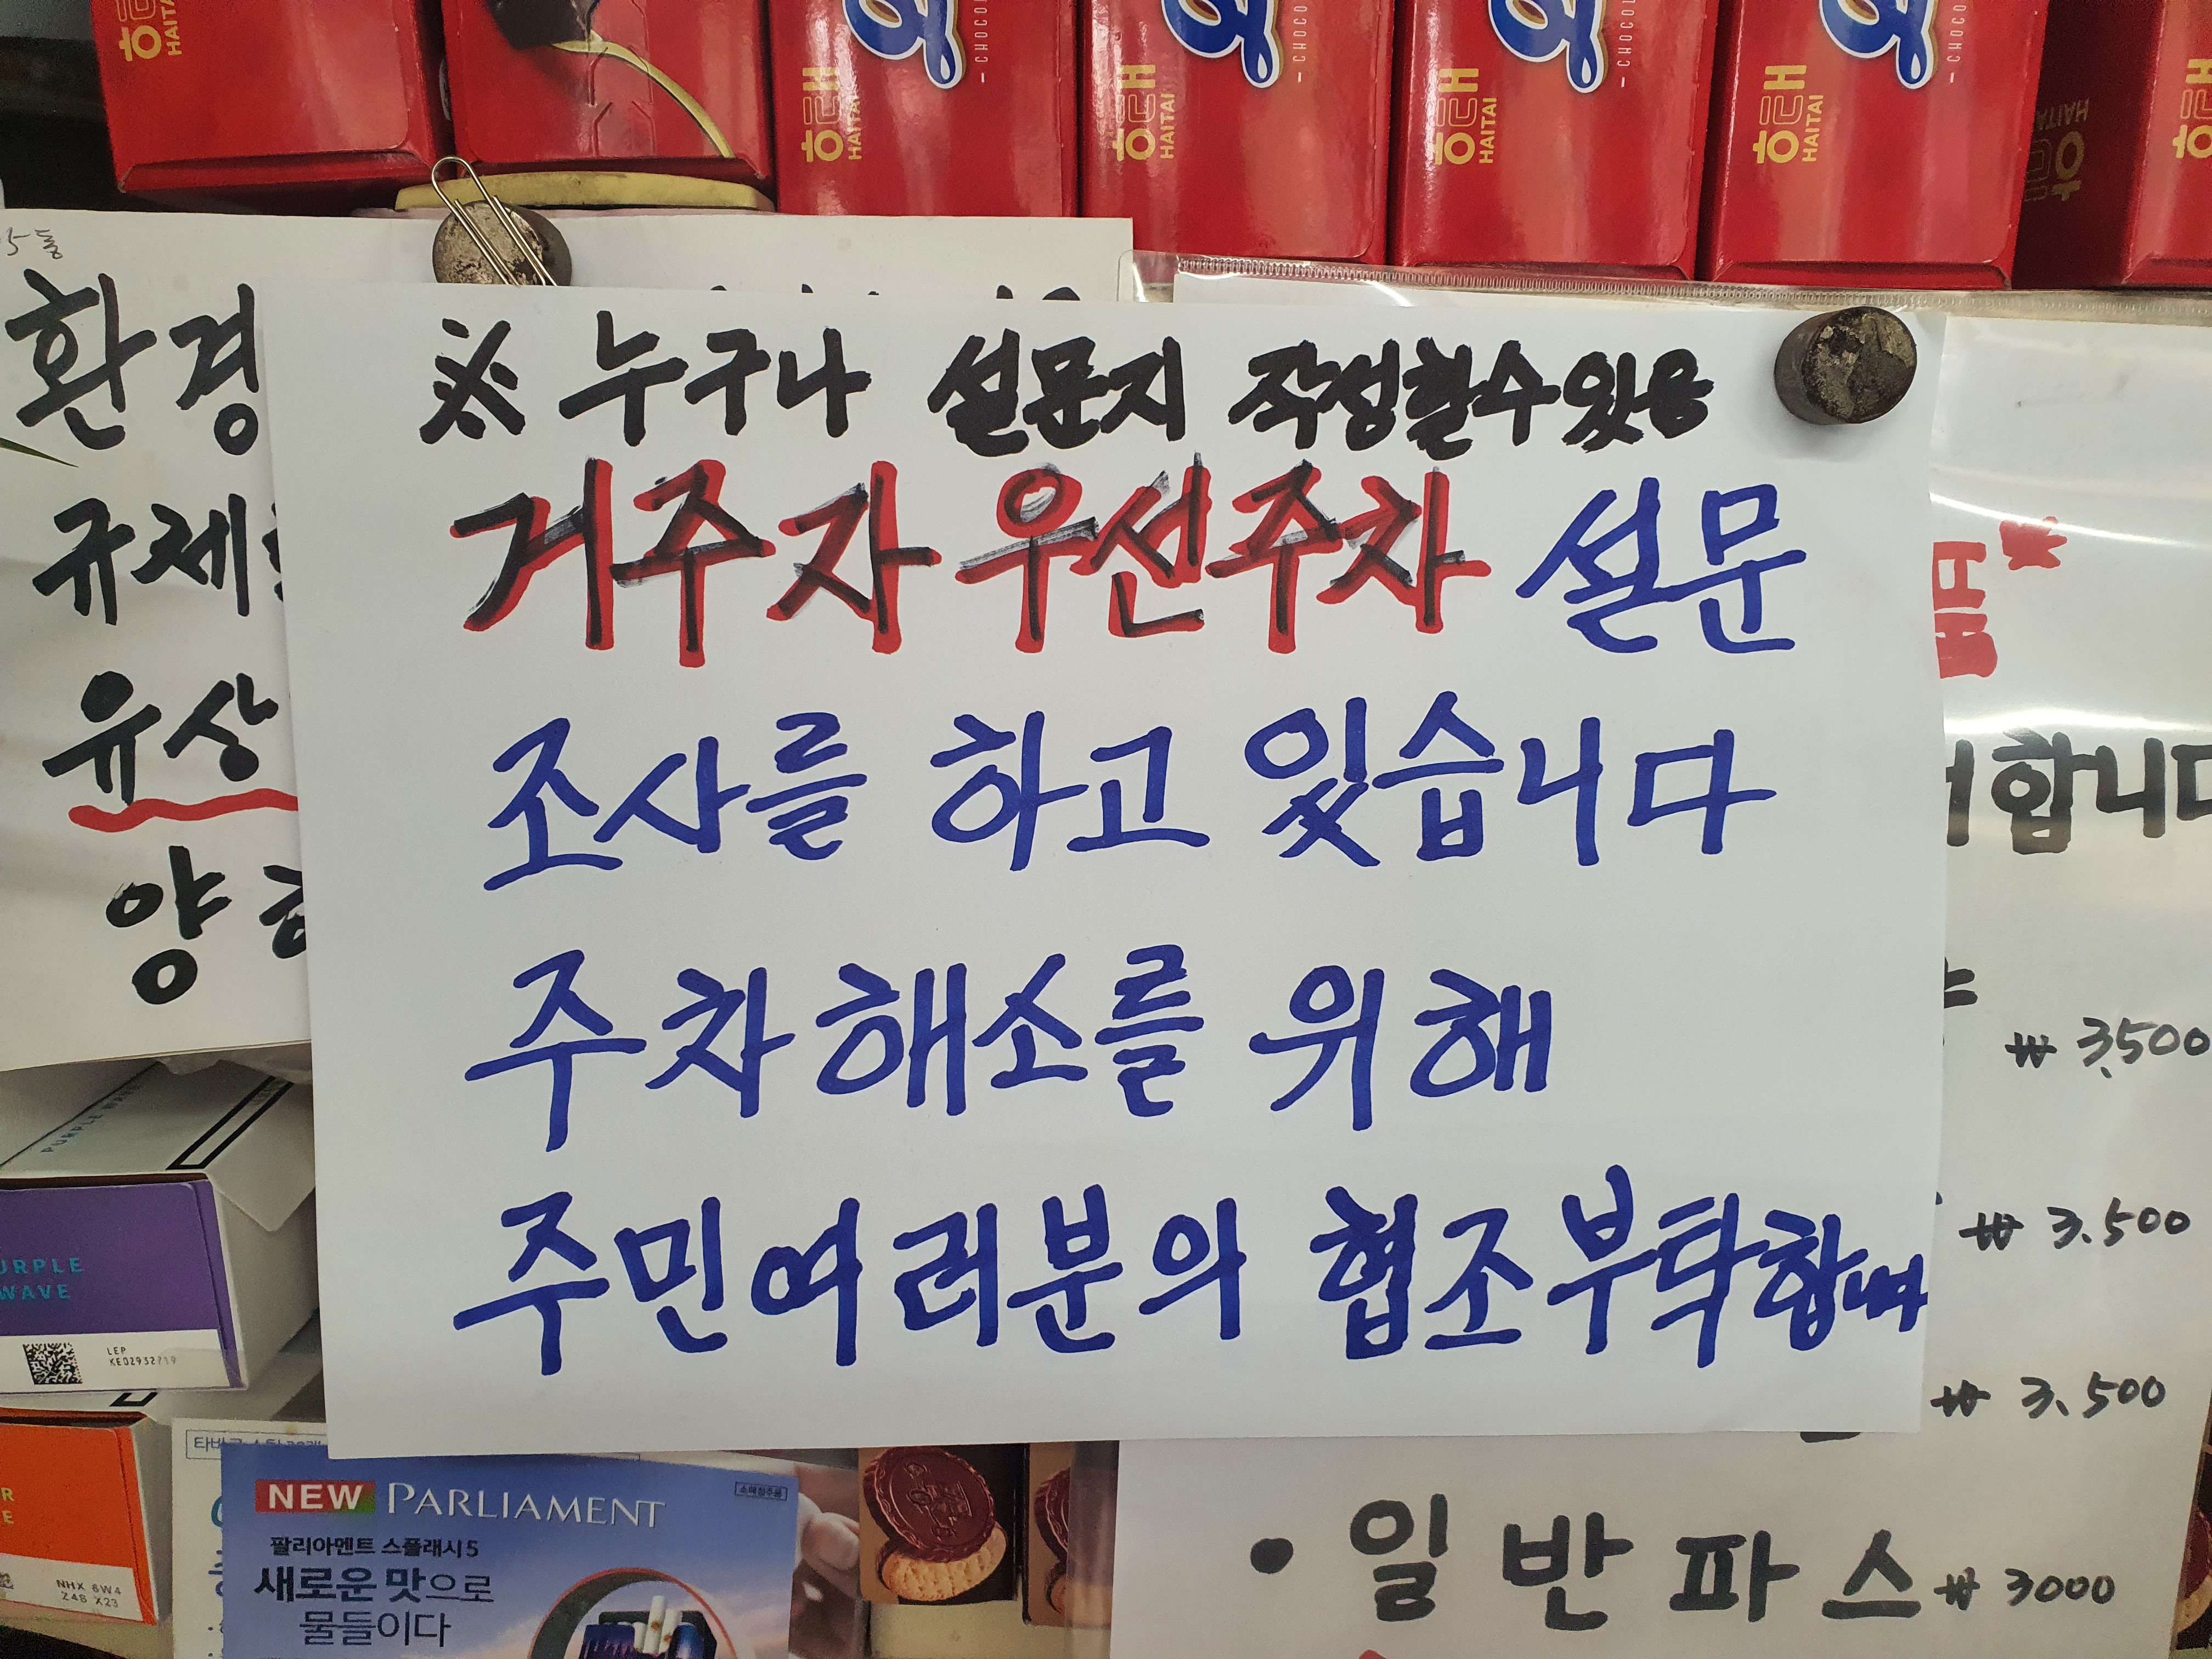 해태
HAITAI
해태
HAITAI
해태
HAITAI
해태
HAITAI
해태
HAITAI
해태
HAITAI
환경
규제
유상
양
※ 누구나 설문지 작성할수있음
거주자 우선주차 설문
조사를 하고 있습니다
주차해소를 위해
주민여러분의 협조부탁합니다
합니다
₩ 3,500
₩ 3.500
₩ 3.500
• 일반파스 ₩ 3000
PURPLE WAVE
PURPLE
WAVE
LEP
KE02932719
NHX 6W4
Z48 X23
NEW PARLIAMENT
팔리아멘트 스플래시 5
새로운 맛으로
물들이다